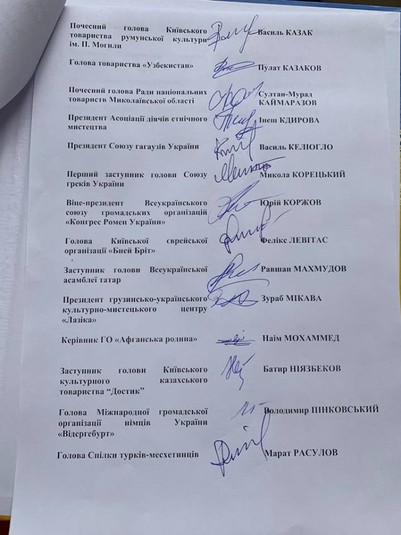 Почесний голова Київського
товариства румунської культури Василь КАЗАК
ім. П. Могили
Голова товариства «Узбекистан» Пулат КАЗАКОВ
Почесний голова Ради національних Султан-Мурад
товариств Миколаївської області КАЙМАРАЗОВ
Президент Асоціації діячів етнічного Інеш КДИРОВА
мистецтва
Президент Союзу гагаузів України Василь КЕЛІОГЛО
Перший заступник голови Союзу Микола КОРЕЦЬКИЙ
греків України
Віце-президент Всеукраїнського Юрій КОРЖОВ
союзу громадських організацій
«Конгрес Ромен України»
Голова Київської єврейської Фелікс ЛЕВІТАС
організації «Бней Бріт»
Заступник голови Всеукраїнської Равшан МАХМУДОВ
асамблеї татар
Президент грузинсько-українського Зураб МІКАВА
культурно-мистецького центру
«Лазіка»
Керівник ГО «Афганська родина» Наїм МОХАММЕД
Заступник голови Київського Батир НІЯЗБЕКОВ
культурного казахського
товариства “Достик”
Голова Міжнародної громадської Володимир ПІНКОВСЬКИЙ
організації німців України
«Відергебурт»
Голова Спілки турків-месхетинців Марат РАСУЛОВ